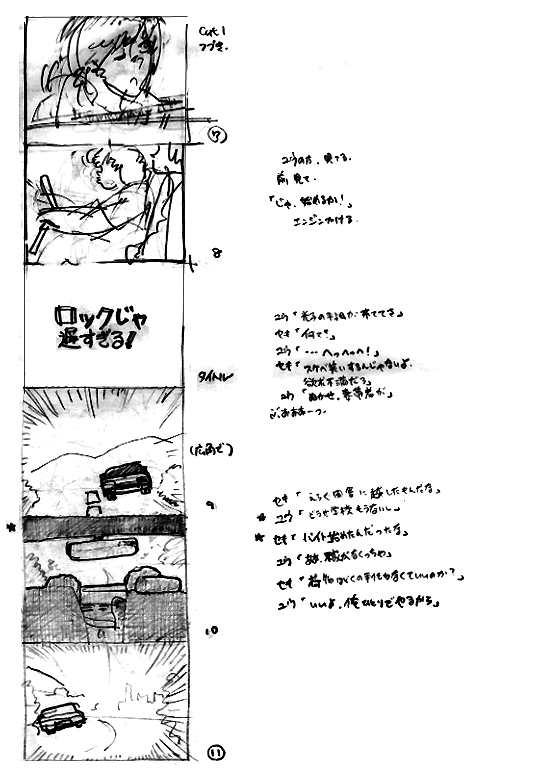 Cut 1
つづき.
⑦
ユウの方、見てる.
前見て.
「じゃ、始めるか!」
エンジンかける.
8
ロックじゃ
遅すぎる!
タイトル
セキ「何てさ」
ユウ「…へっへっへ!」
セキ「スケベ笑いするんじゃないよ.
欲求不満だろ」
ユウ「ぬかせ、妻帯者が」
(広角で)
9
セキ「えらく田舎に越したもんだな」
★ ユウ「どうせ学校もうないし」
★ セキ「バイト始めたんだったな」
★
セキ「荷物ほどくの手伝わなくていいのか?」
ユウ「いいよ、俺ひとりでやるから」
10
⑪